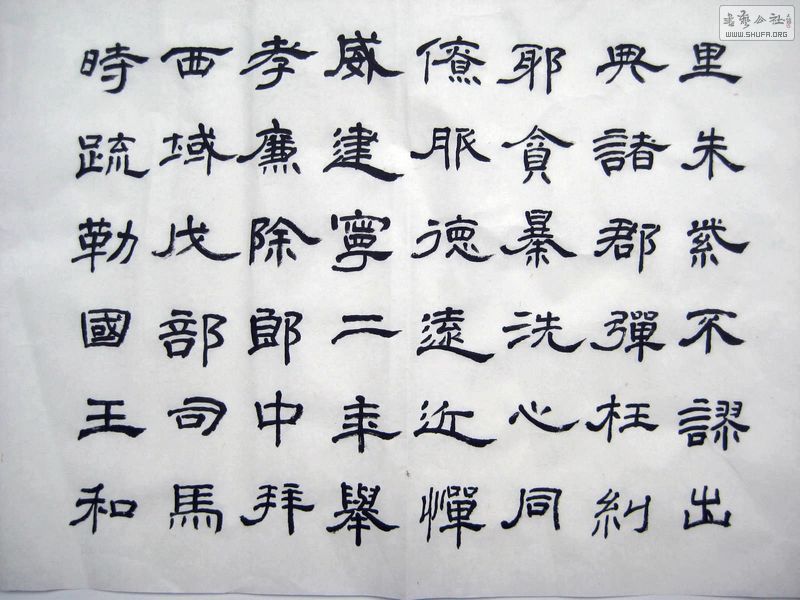 里朱紫不謬出
典諸郡彈枉糾
耶貪暴洗心同
僚服德遠近憚
威建寧二年舉
孝廉除郎中拜
西域戊部司馬
時疏勒國王和
书艺公社
WWW.SHUFA.ORG